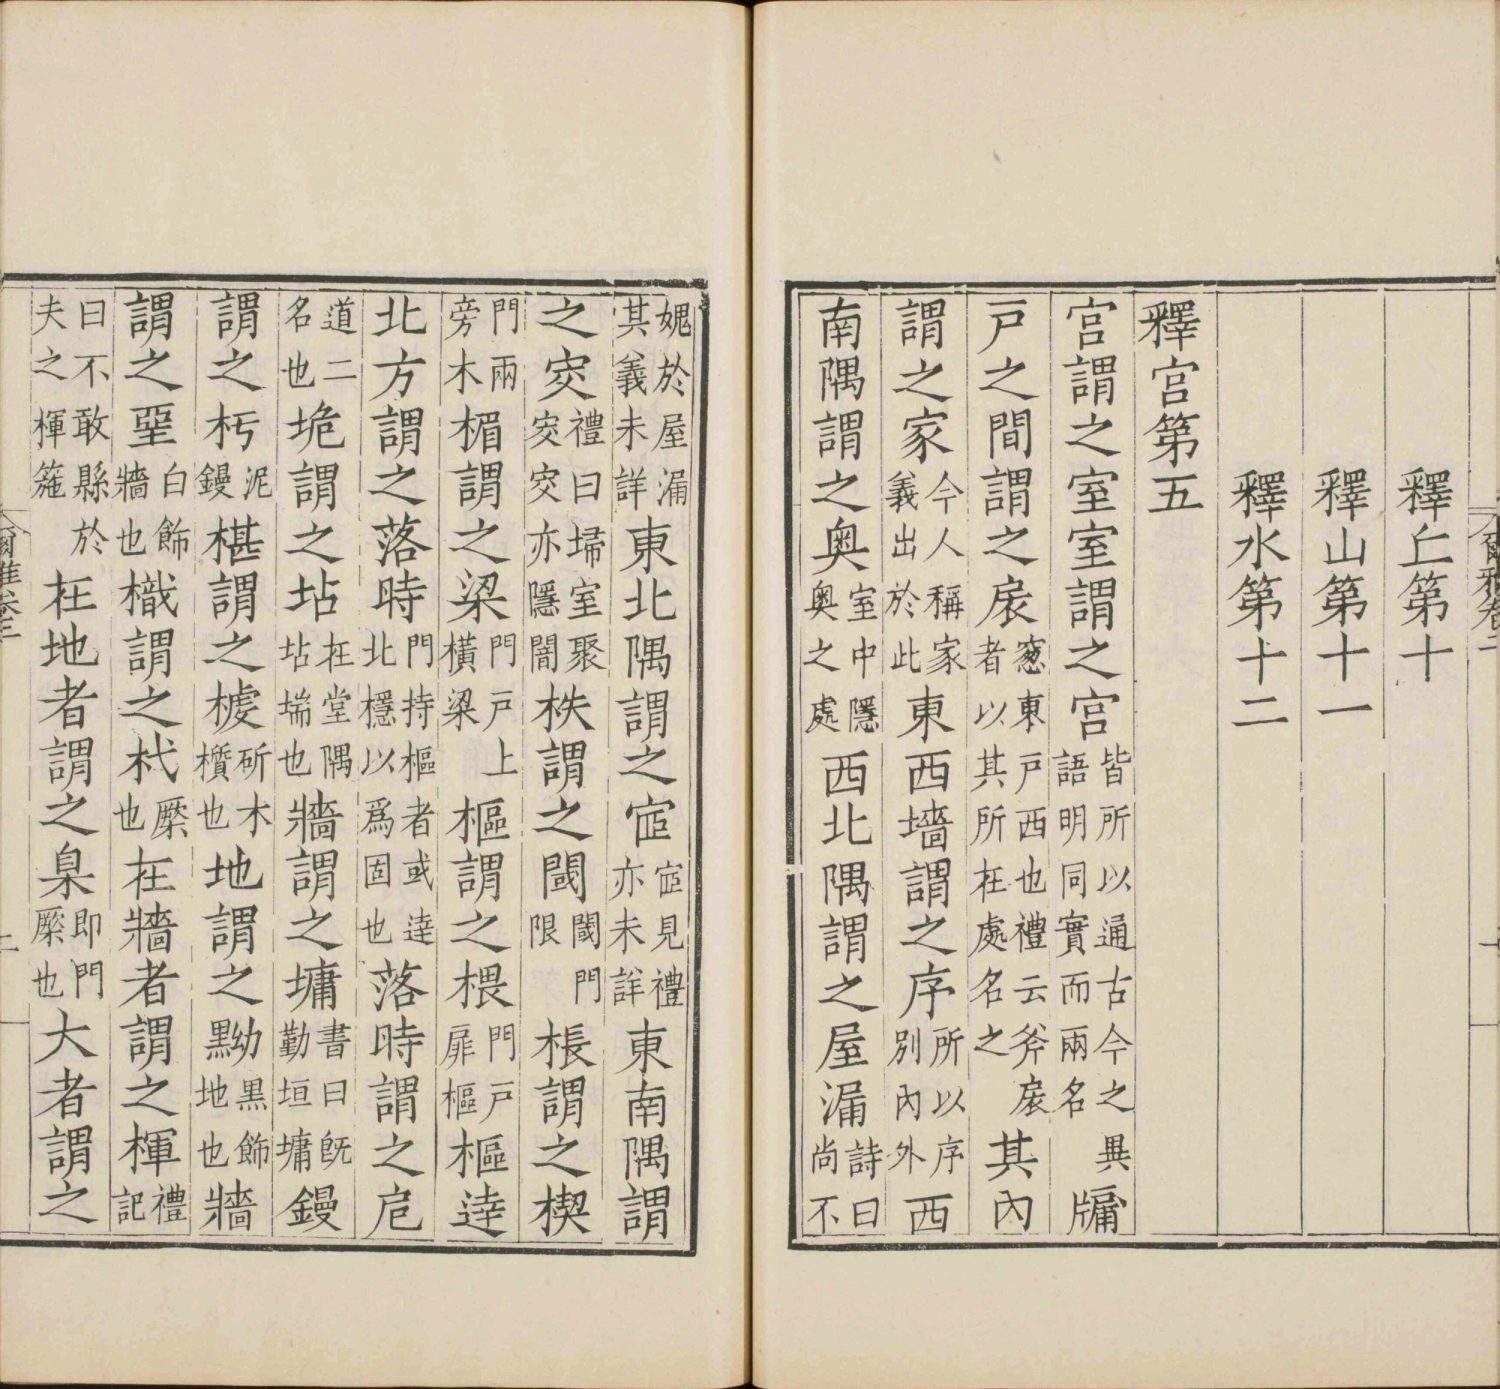 釋丘第十
釋山第十一
釋水第十二
釋宮第五
宮謂之室室謂之宮皆所以通古今之異語明同實而兩名牖
戶之間謂之扆窻東戶西也禮云斧扆者以其所在處名之其內
謂之家今人稱家義出於此東西墻謂之序所以序別內外西
南隅謂之奧室中隱奧之處西北隅謂之屋漏詩曰尚不
媿於屋漏其義未詳東北隅謂之宧宧見禮亦未詳東南隅謂
之窔禮曰埽室聚窔窔亦隱闇柣謂之閾閾門限棖謂之楔
門兩旁木楣謂之梁門戶上橫梁樞謂之椳門戶扉樞樞達
北方謂之落時門持樞者或達北檼以爲固也落時謂之戹
道二名也垝謂之坫坫在堂隅坫端也牆謂之墉書曰旣勤垣墉鏝
謂之杇泥鏝椹謂之榩斫木櫍也地謂之黝黑飾地也牆
謂之堊白飾牆也樴謂之杙橜也在牆者謂之楎禮記
曰不敢縣於夫之楎箷在地者謂之臬即門橜也大者謂之
爾雅卷二